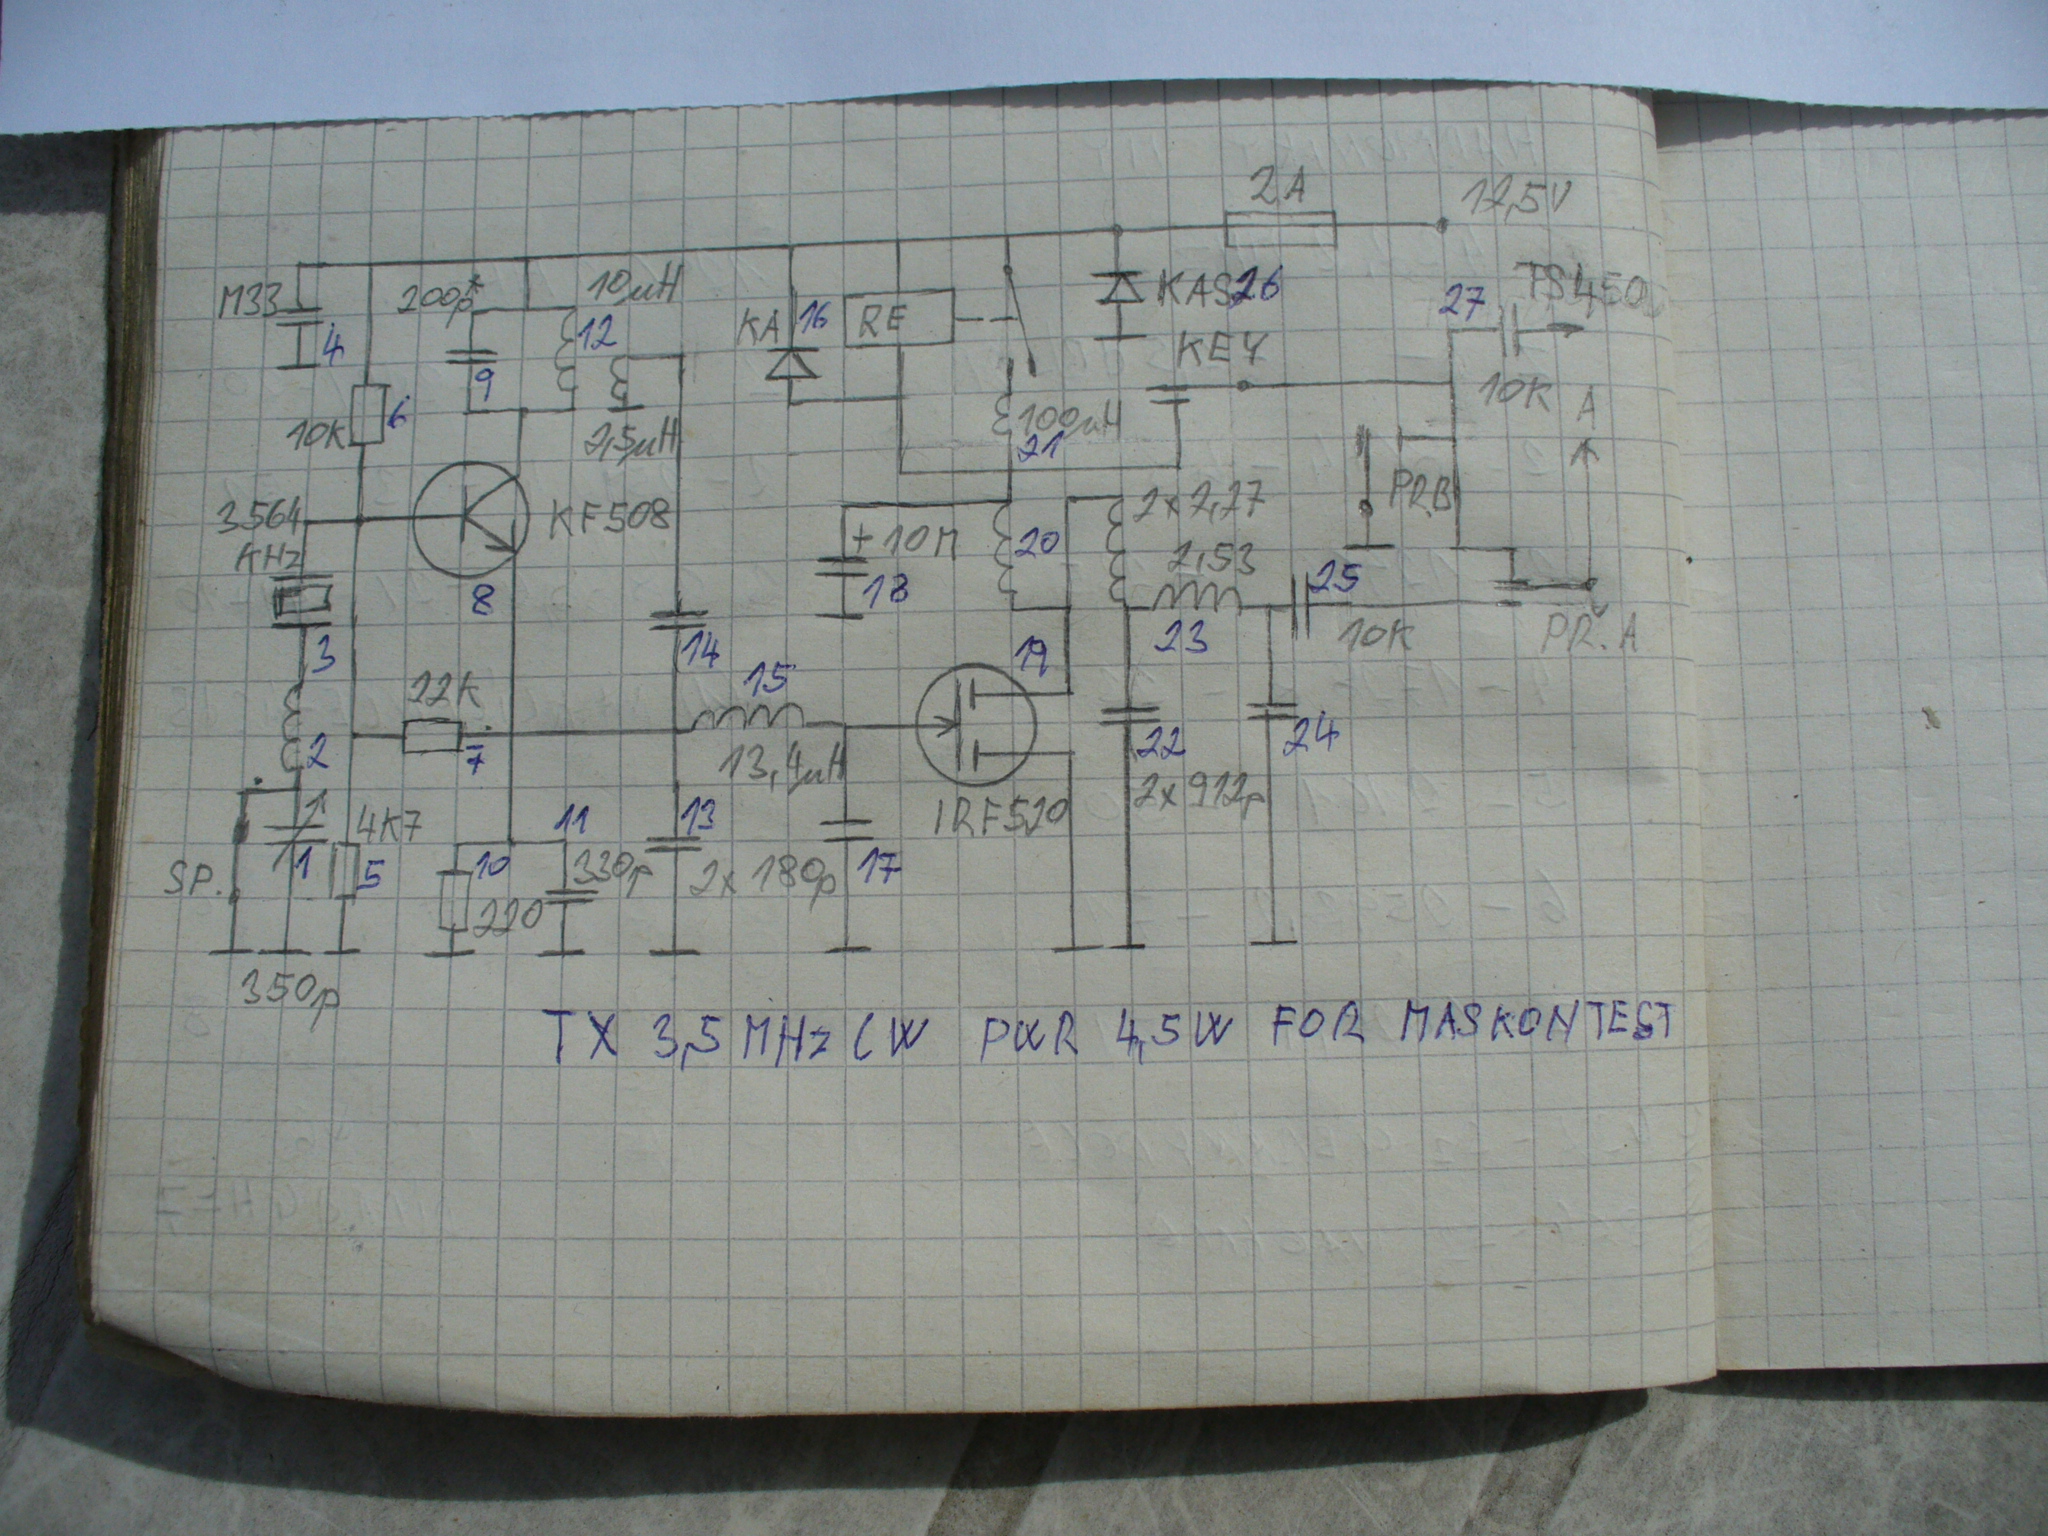 2A
12,5V
M33
200p*
10µH
KA
16
RE
KAS26
27
TS450
4
12
KEY
9
10K
6
2,5µH
100µH
21
10K
A
PŘ.B
3564
KHz
KF508
+10M
20
2x2,27
2,53
18
25
8
3
14
19
23
10K
PŘ.A
22K
15
2
7
13,4µH
22
24
IRF520
2x912p
4K7
11
13
SP.
1
5
10
330p
2x 180p
17
220
350p
TX 3,5MHz CW PWR 4,5W FOR MASKONTEST